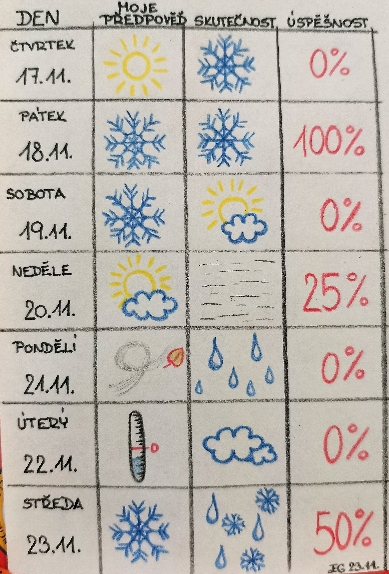 DEN MOJE PŘEDPOVĚĎ SKUTEČNOST ÚSPĚŠNOST
ČTVRTEK
17.11. 0%
PÁTEK
18.11. 100%
SOBOTA
19.11. 0%
NEDĚLE
20.11. 25%
PONDĚLÍ
21.11. 0%
ÚTERÝ
22.11. 0 0%
STŘEDA
23.11. 50%
EG 23.11.